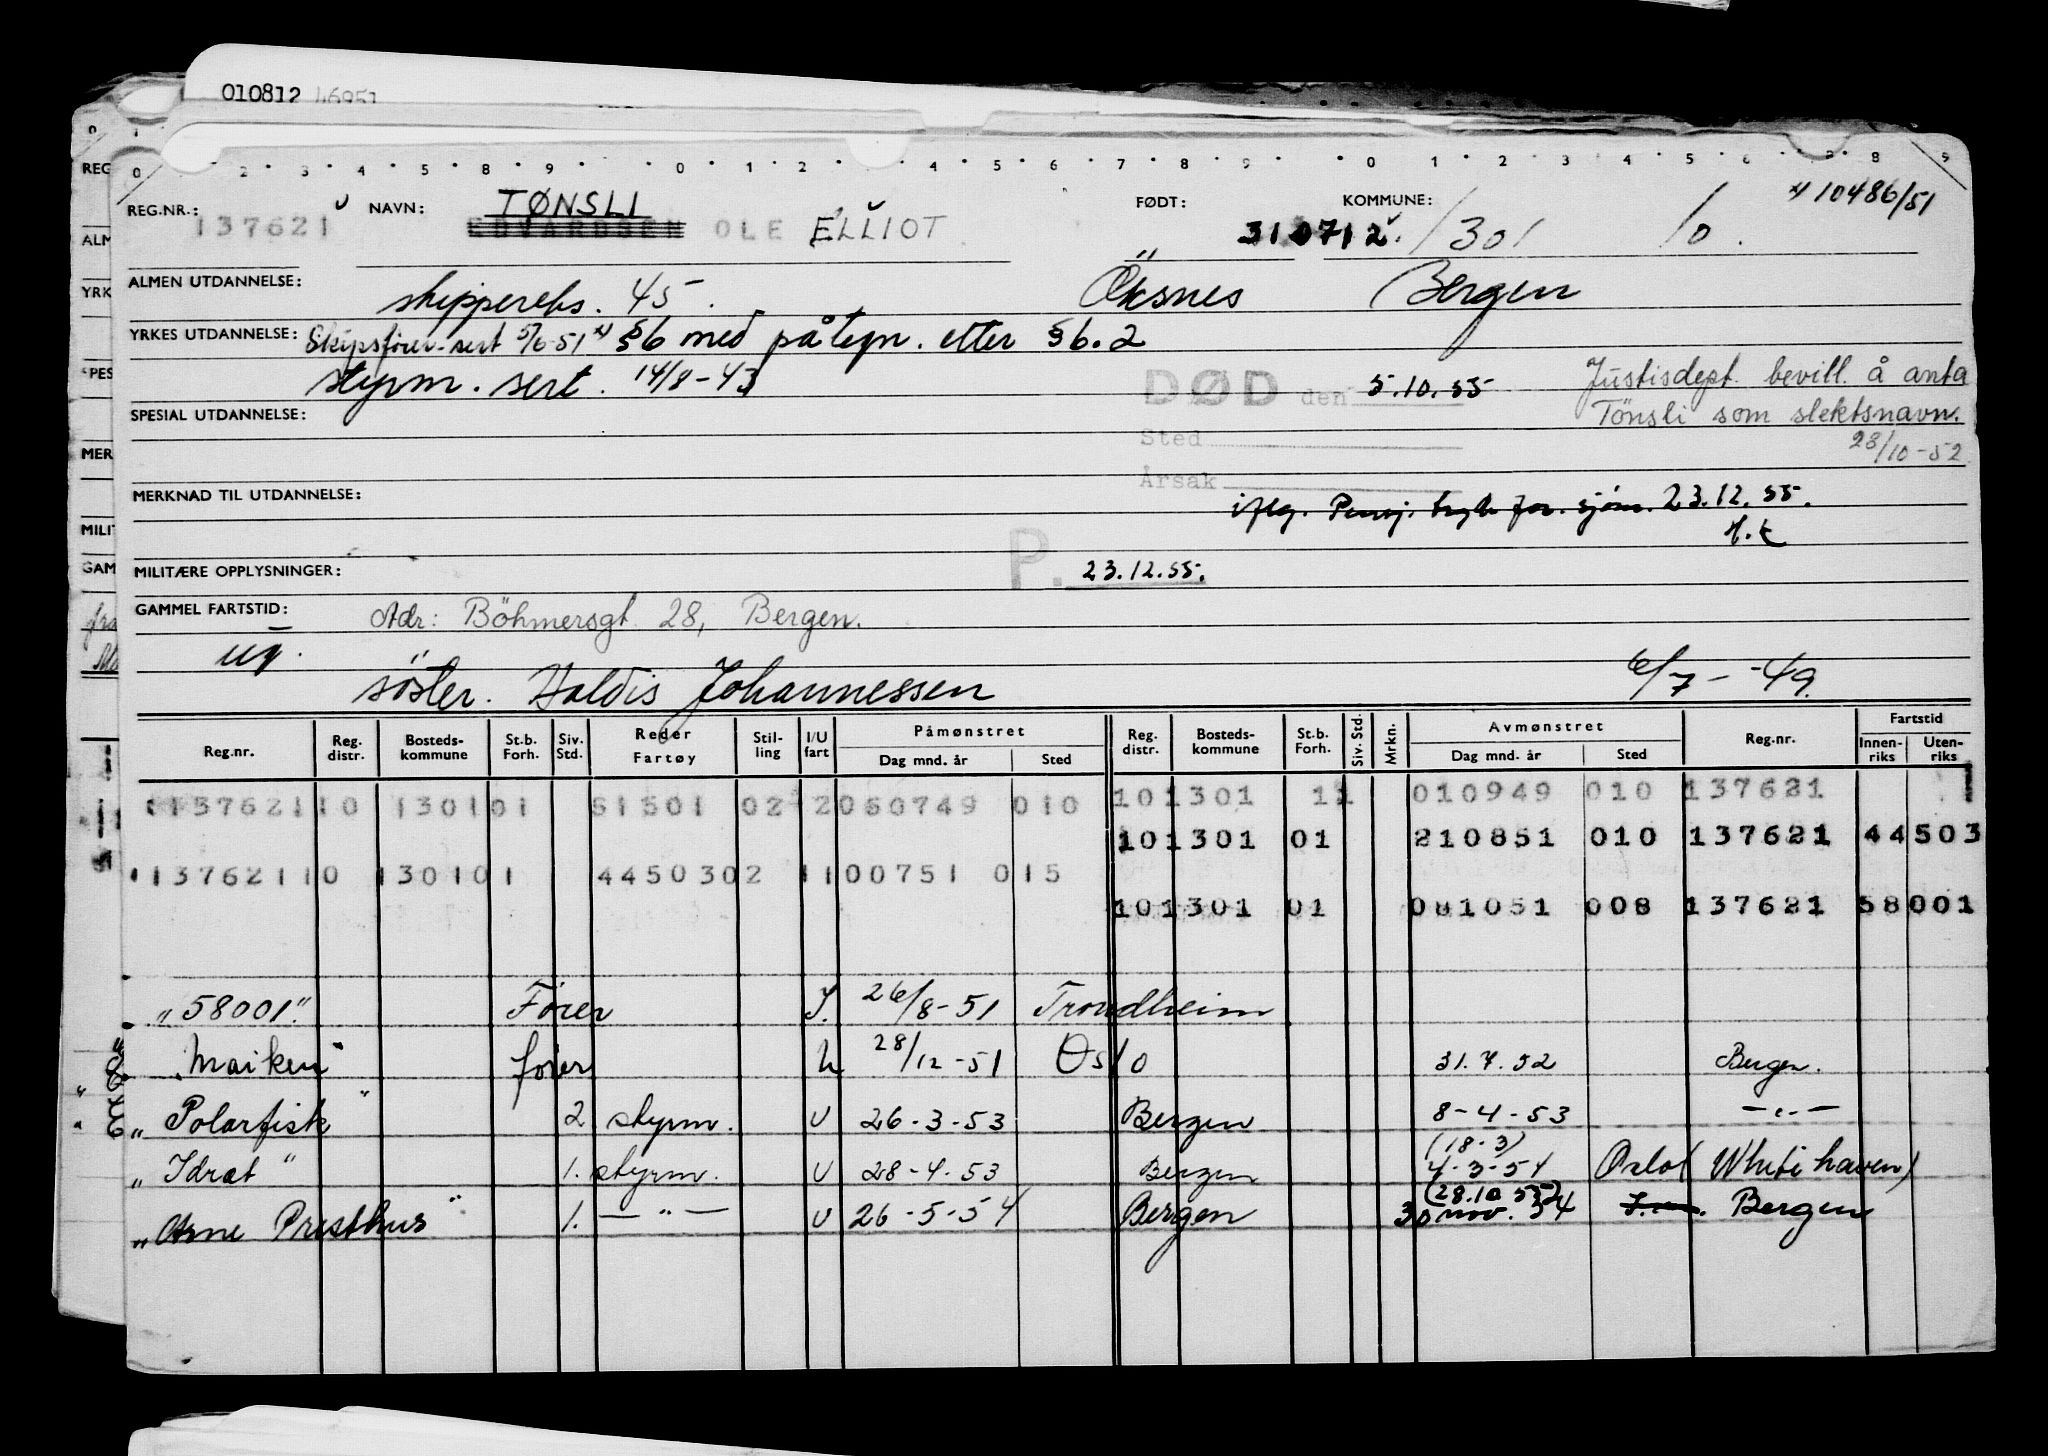 010812 46951
0 1 2 3 4 5 8 9 0 1 2 4 5 6 7 8 9 0 1 2 3 4 5 6 7 8 9
REG.NR.: 137621 NAVN: TØNSLI FØDT: KOMMUNE: x) 10486/51
EDVARDSEN OLE ELLIOT 310712. /301 /0.
ALMEN UTDANNELSE: skippereks. 45. Öksnes Bergen
YRKES UTDANNELSE: Skipsfører-sert 5/6-51 x) §6 med påtegn. etter §6.2
styrm. sert. 14/8-43 DØD den 5.10.55 Justisdept. bevill. å anta
SPESIAL UTDANNELSE: Sted Tönsli som slektsnavn.
28/10-52
MERKNAD TIL UTDANNELSE: Årsak
iflg. Pensj. tryk for. sjøm. 23.12.55.
H.t
MILITÆRE OPPLYSNINGER: P. 23.12.55.
GAMMEL FARTSTID: Adr: Böhmersgt. 28, Bergen.
ug. söster. Haldis Johannessen 6/7 - -49.
Reg.nr. Reg. distr. Bosteds- kommune St.b. Forh. Siv. Std. Reder Fartøy Stil- ling I/U fart Påmønstret Dag mnd. år Sted Reg. distr. Bosteds- kommune St.b. Forh. Siv. Std. Mrkn. Avmønstret Dag mnd. år Sted Reg.nr. Fartstid Innen- riks Uten- riks
113762110 130101 51501 02 2 060749 010 101301 11 010949 010 137621 1
101301 01 210851 010 137621 44503
113762110 130101 4450302 1100751 015
101301 01 081051 008 137621 58001
„58001" Fører I. 26/8-51 Trondheim
„Maiken" fører U 28/12-51 Oslo 31.7.52 Bergen.
„Polarfisk" 2 styrm. U 26-3-53 Bergen 8-4-53 —„—
„Idrat" 1. styrm. U 28-4-53 Bergen (18-3) 4-3-54 Oslo (Whitehaven)
„Arne Presthus" 1. —"— U 26-5-54 Bergen (28.10 55) 30 nov. 54 Bergen